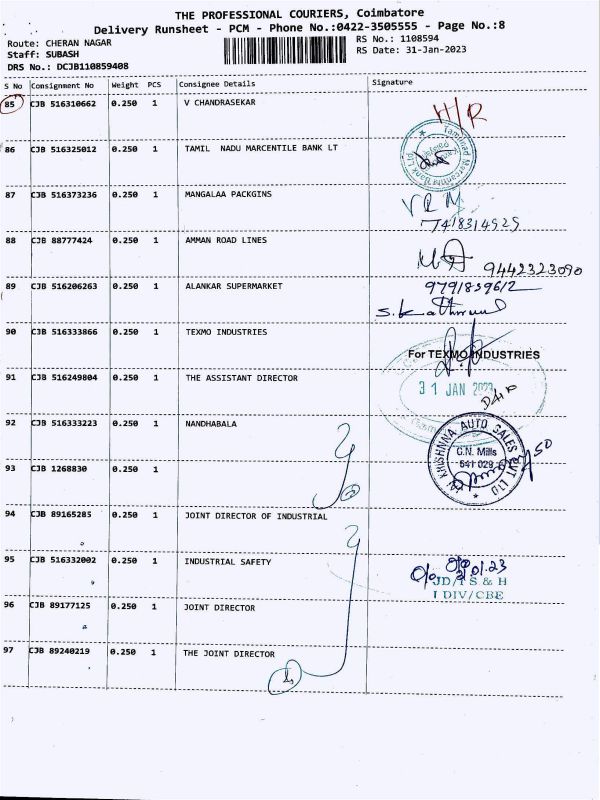 THE PROFESSIONAL COURIERS, Coimbatore
Delivery Runsheet - PCM - Phone No.:0422-3505555 - Page No.:8
Route: CHERAN NAGAR
Staff: SUBASH
DRS No.: DCJB110859408
RS No.: 1108594
RS Date: 31-Jan-2023
S No Consignment No Weight PCS Consignee Details Signature
85 CJB 516310662 0.250 1 V CHANDRASEKAR
H/R
86 CJB 516325012 0.250 1 TAMIL NADU MARCENTILE BANK LT
Tamilnad Mercantile Bank Ltd
87 CJB 516373236 0.250 1 MANGALAA PACKGINS
VRM
7418314925
88 CJB 88777424 0.250 1 AMMAN ROAD LINES
9442323090
89 CJB 516206263 0.250 1 ALANKAR SUPERMARKET
9791839612
90 CJB 516333866 0.250 1 TEXMO INDUSTRIES
For TEXMO INDUSTRIES
91 CJB 516249804 0.250 1 THE ASSISTANT DIRECTOR
31 JAN 2023
92 CJB 516333223 0.250 1 NANDHABALA
KRISHNNA AUTO SALES PVT LTD
G.N. Mills
641 029
93 CJB 1268830 0.250 1
94 CJB 89165285 0.250 1 JOINT DIRECTOR OF INDUSTRIAL
95 CJB 516332002 0.250 1 INDUSTRIAL SAFETY
JD/I S & H
I DIV/CBE
96 CJB 89177125 0.250 1 JOINT DIRECTOR
97 CJB 89240219 0.250 1 THE JOINT DIRECTOR